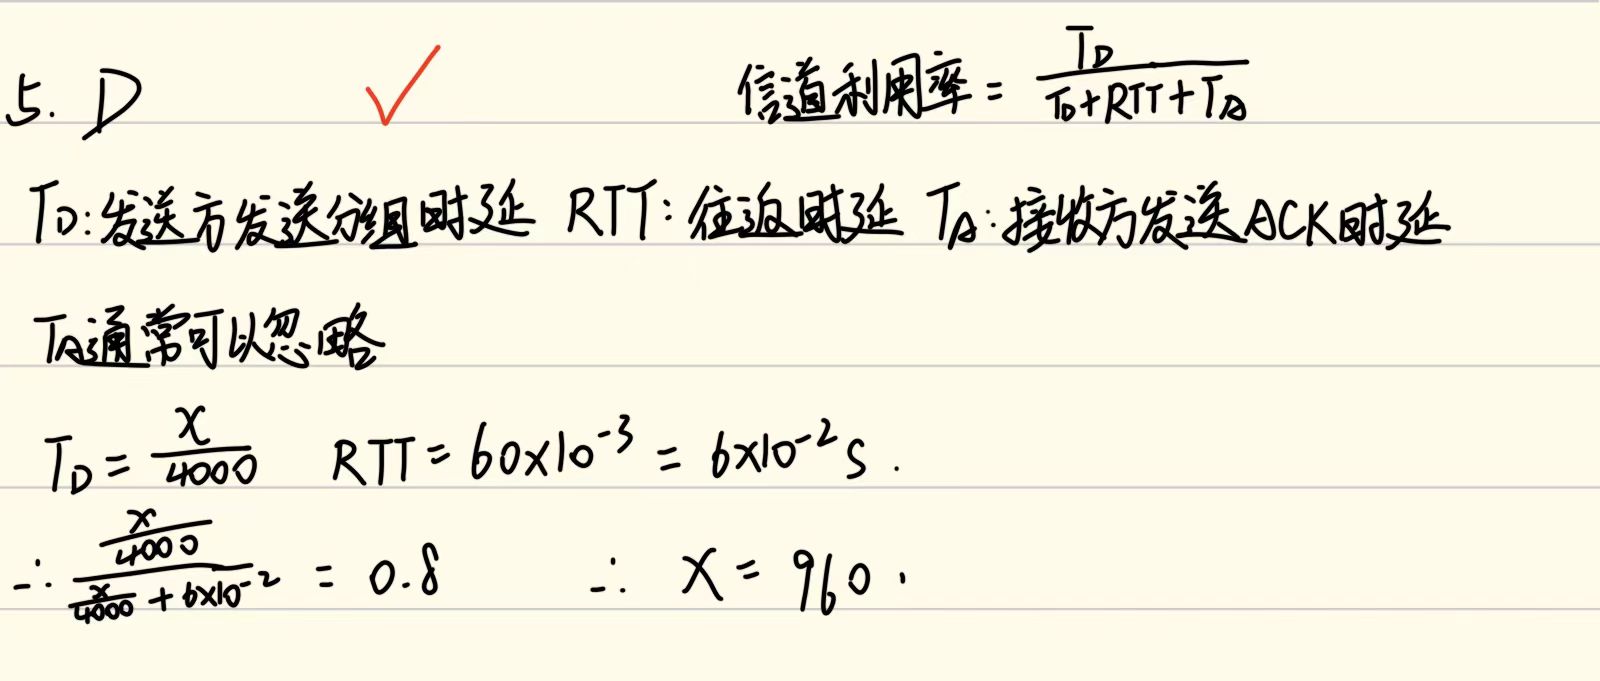 5. D ✓ 信道利用率 = T_D / (T_D + RTT + T_A)
T_D: 发送方发送分组时延 RTT: 往返时延 T_A: 接收方发送ACK时延
T_A通常可以忽略
T_D = x/4000 RTT = 60×10⁻³ = 6×10⁻² s.
∴ (x/4000) / (x/4000 + 6×10⁻²) = 0.8 ∴ x = 960.